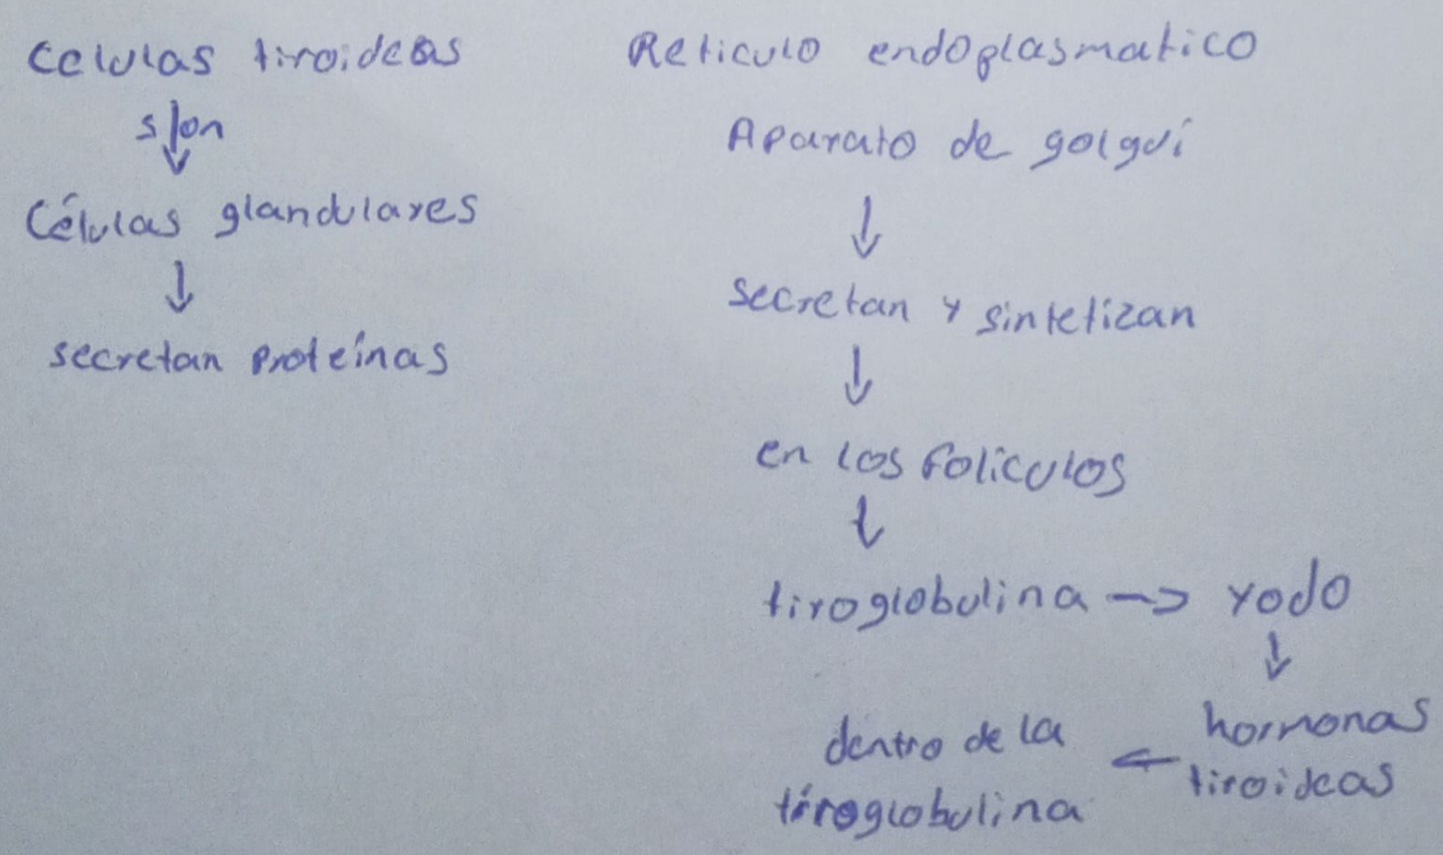 Celulas tiroideas
son
Células glandulares
secretan proteínas
Reticulo endoplasmatico
Aparato de golgui
secretan y sintetizan
en los foliculos
tiroglobulina -> yodo
hormonas
tiroideas
dentro de la
tiroglobulina